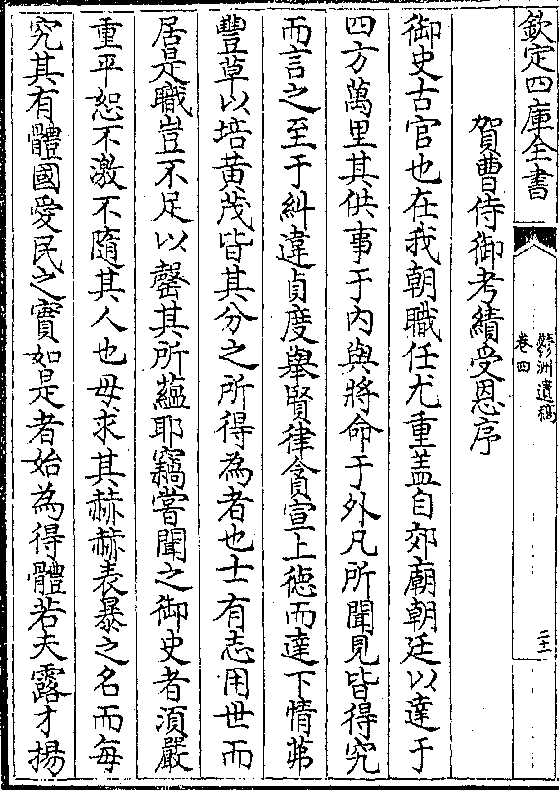 欽定四庫全書
欝洲遺稿
卷四
二十一
賀曹侍御考績受恩序
御史古官也在我朝職任尤重盖自郊廟朝廷以達于
四方萬里其供事于內與將命于外凡所聞見皆得究
而言之至于糾違貞度舉賢律貪宣上徳而達下情茀
豐草以培黃茂皆其分之所得為者也士有志用世而
居是職豈不足以罄其所蘊耶竊嘗聞之御史者須嚴
重平恕不激不隨其人也毋求其赫赫表暴之名而每
究其有體國愛民之實如是者始為得體若夫露才揚